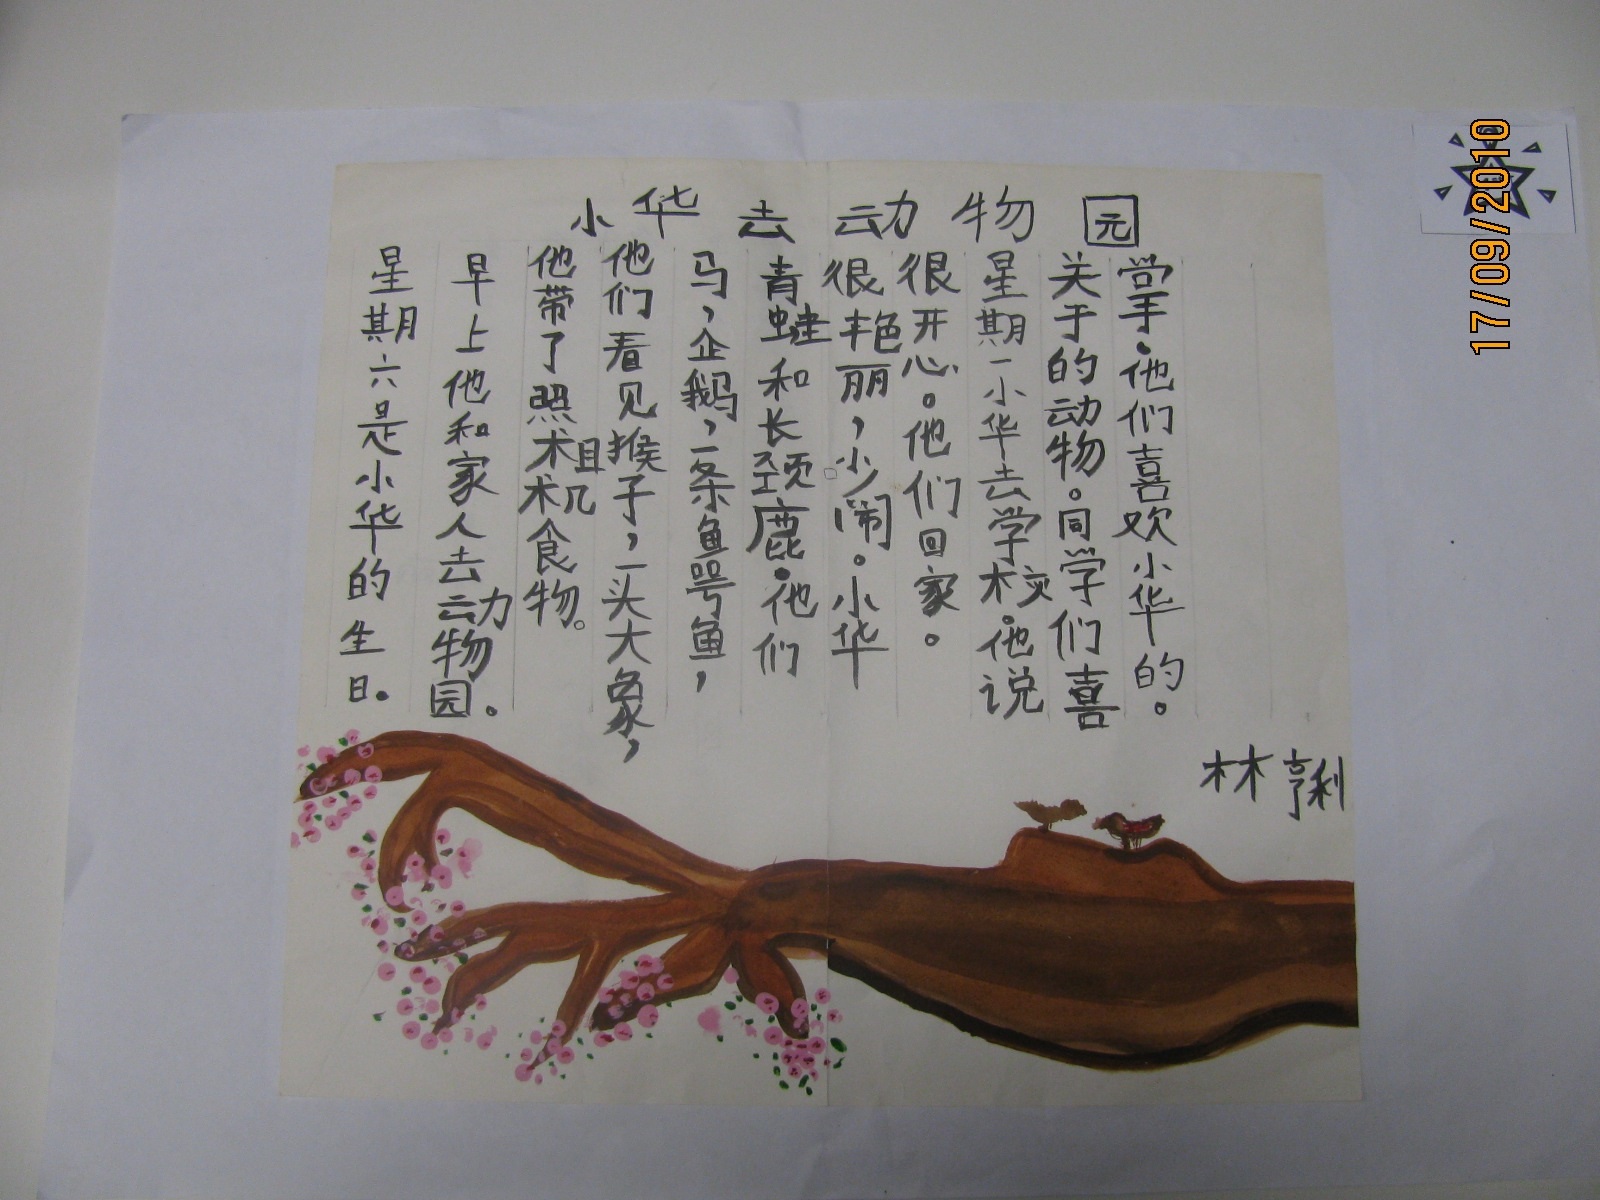 小华去动物园
星期六是小华的生日。
早上他和家人去动物园。
他带了照相机食物。
他们看见猴子，一头大象，
马，企鹅，一条鳄鱼，
青蛙和长颈鹿。他们
很艳丽，吵闹。小华
很开心。他们回家。
星期一小华去学校。他说
关于的动物。同学们喜
掌。他们喜欢小华的。
林亨利
17/09/2010